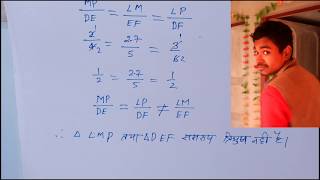 MP/DE = LM/EF = LP/DF
2/4 2 = 2.7/5 = 3/6 2
1/2 = 2.7/5 = 1/2
MP/DE = LP/DF ≠ LM/EF
∴ △ LMP तथा △DEF समरूप त्रिभुज नहीं है।